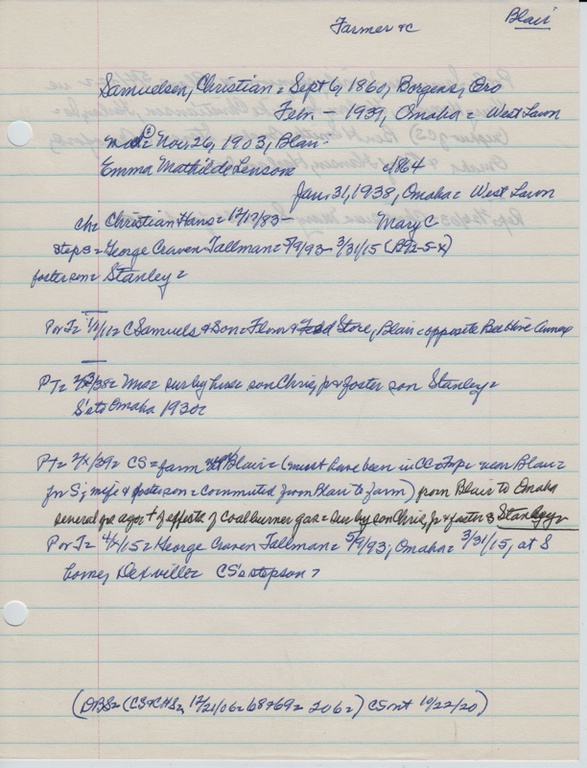 Blair
Farmer &c
Samuelsen, Christian = Sept 6, 1860, Borgene, Oro
Febr. - 1939, Omaha = West Lawn
Nov. 26, 1903, Blair =
Emma Mathilde Lenson c1864
Jan. 31, 1938, Omaha = West Lawn
ch = Christian Hans = 12/17/83 - Mary C
step s = George Craven Tallman = 5/9/93 - 3/31/15
foster son = Stanley =
P or T = C Samuels & Son = Flour & Feed Store, Blair = opposite Bee Hive Annex
PT = Mrs = sur by hus = son Chris, jr & foster son Stanley =
S's to Omaha 1930c
PT = 2/x/39 = CS = farm Blair = (must have been in CC Twp = near Blair =
for S; wife & foster son = commuted from Blair to farm) from Blair to Omaha
several yrs ago + of effects of coal burner gas = sur by son Chris, Jr & foster s Stanley =
P or T = 4/x/15 = George Craven Tallman = 5/9/93, Omaha = 3/31/15, at S
home, Dexville = CS's stepson
(DBS = (CS & CHS, 12/21/06 = 68 & 69 = 206 =) CS nt 10/22/20)